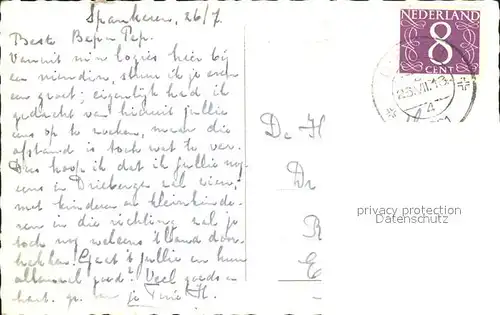 Spankeren, 26/7.
Beste Bep en Pep.
Vanuit m'n logies hier bij
een vriendin, stuur ik je even
een groet; eigenlijk had ik
gedacht van hieruit jullie
eens op te zoeken, maar die
afstand is toch wat te ver.
Dus hoop ik dat ik jullie nog
eens in Driebergen zal zien;
met kinderen en kleinkinde-
ren in die richting zal je
toch nog weleens 't land door-
trekken! Gaat 't jullie en hun
allemaal goed? Veel goeds en
hart. gr. van je H.
NEDERLAND
8
CENT
De H
Dr
R
E
privacy protection
OLDTHING